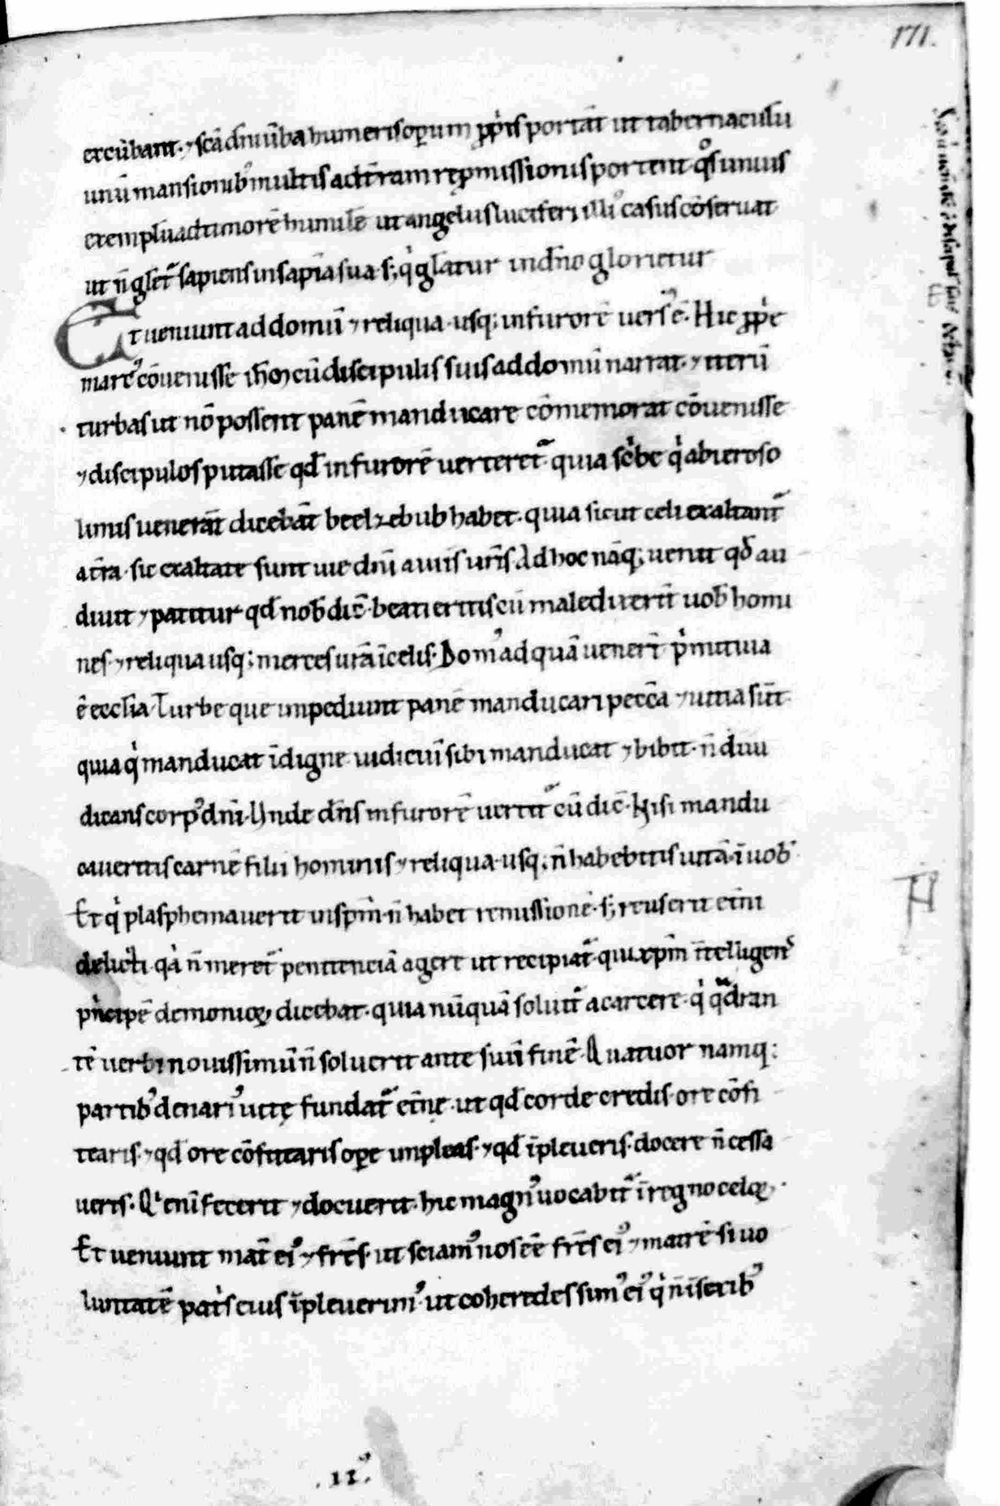 171.
excubant. ⁊ scā dīu ūba humeris oꝑum ꝓp̄is portāt ut tabernaculū
unū mansionib; multis ad tr̄am rep̱missionis portent. q̊s unius
exemplū ad timorē humilē ut angelus luciferi illi᷒ casus cōseruat
ut n̄ glet᷒ sapiens in sapīa sua s; q̇ glatur in dn̄o glorietur
Et ueniunt ad domū ⁊ reliqua. usq; in furorē uers᷒ ē. Hic ꝓp̄e
marc᷒ cōuenisse ih̄m cū discipulis suis ad domū narrat. ⁊ iterū
turbas ut nō possent panē manducare cōmemorat cōuenisse
⁊ discipulos putasse qd̄ in furorē uerteret᷒. quia sc̄be q̇ ab ieroso
limis uenerāt dicebāt beelzebub habet. quia sicut celi exaltant᷒
a tr̄a. sic exaltate sunt uie dn̄i a uiis ur̄is. Ad hoc nāq; uenit qd̄ au
diuit ⁊ patitur qd̄ nob̄ dic̄. beati eritis cū maledixerīt uob̄ homi
nes. ⁊ reliqua usq; merces urā ī celis. Dom᷒ ad quā uenert̄ ṗmitiuia
ē ecclīa. Turbe que impediunt panē manducari peccā ⁊ uitia sūt.
quia q̇ manducat īdigne iudiciū sibi manducat ⁊ bibit. n̄ diiu
dicans corp᷒ dn̄i. Unde dn̄s in furorē uertit᷒ cū dic̄. Nisi mandu
caueritis carnē filii hominis ⁊ reliqua. usq; n̄ habebitis uitā. ī uob̄
Et q̇ plasphemauerit in sp̄m. n̄ habet remissionē. s; reus erit etn̄i
delicti. q̇a n̄ meret᷒ penitenciā agere ut recipiat᷒. qui xp̄m ītelligens
p̄ncipē demonioꝝ dicebat. quia nūquā soluit᷒ a carcere. q̇ q̓dran
tē uerbi nouissimū n̄ soluerit ante suū finē. Quatuor namq;
partib᷒ denari᷒ uite fundat᷒ et̄ne. ut qd̄ corde credis. ore cōfi
tearis. ⁊ qd̄ ore cōfitearis oꝑe impleas. ⁊ qd̄ īpleueris. docere n̄ cessa
ueris. Q̇ enī fecerit ⁊ docuerit. hic magn᷒ uocabit᷒ ī regno celoꝝ.
Et ueniunt mat̄ ei᷒ ⁊ frēs. ut sciam᷒ nos eē frēs ei᷒ ⁊ matrē si uo
luntatē pat̓s eius īpleuerim᷒. ut coheredes sim᷒ ei᷒ q̇ n̄ īserib᷒
.II᷒.